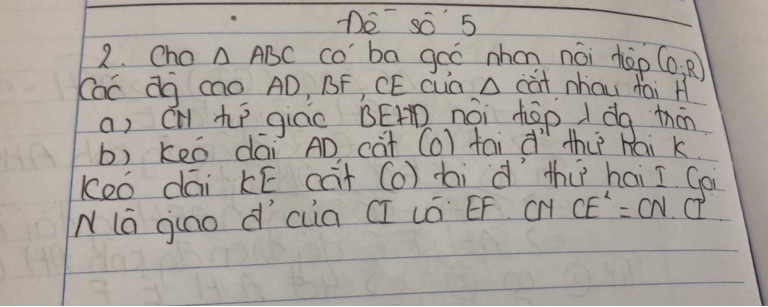 Đề số 5
2. Cho Δ ABC có ba góc nhọn nội tiếp (O;R)
Các đg cao AD, BF, CE của Δ cắt nhau tại H
a) CM tứ giác BEHD nội tiếp 1 đg tròn
b) Kéo dài AD cắt (O) tại đ' thứ hai K.
Kéo dài KE cắt (O) tại đ' thứ hai I. Gọi
N là giao đ' của CI và EF. CM CE² = CN. CI